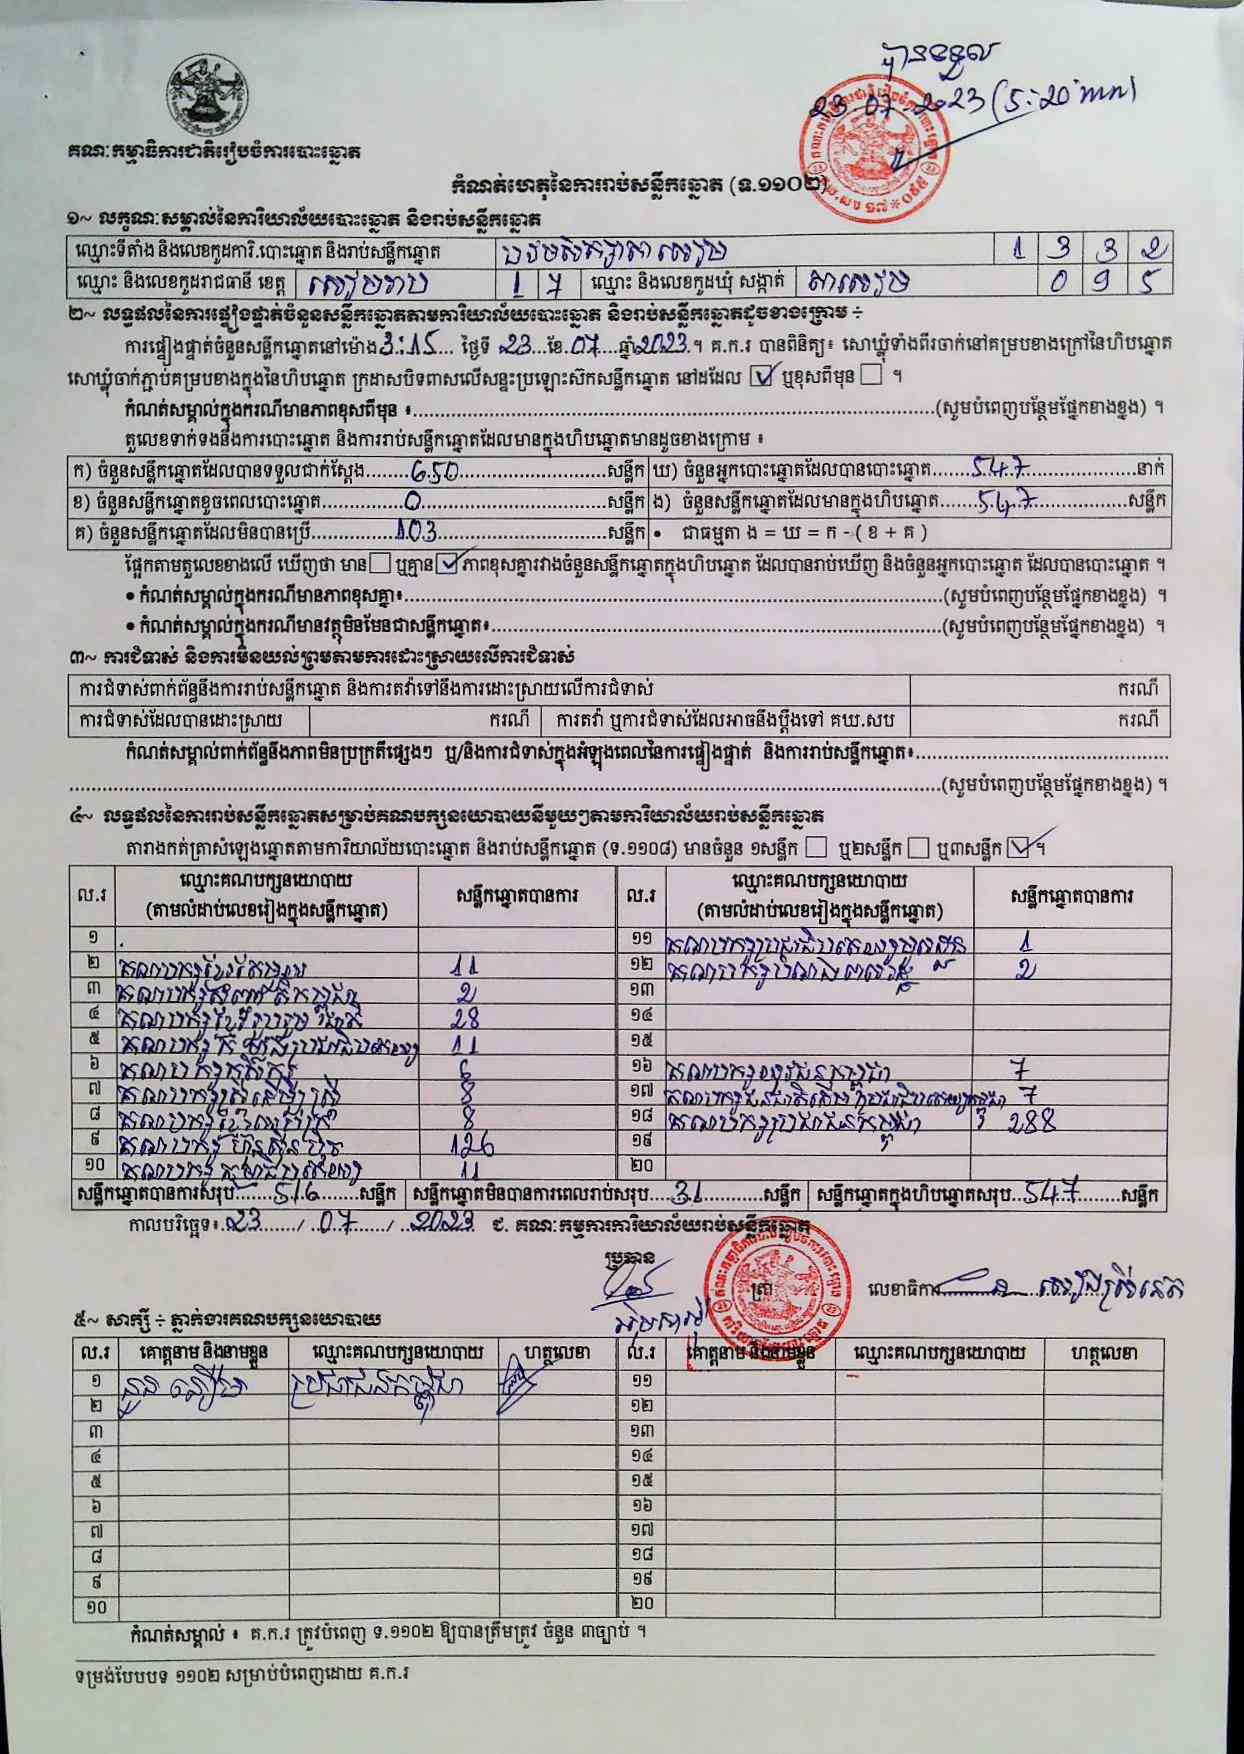 បានទទួល
23.07.2023 (5:20 mn)
គណៈកម្មាធិការជាតិរៀបចំការបោះឆ្នោត
កំណត់ហេតុនៃការរាប់សន្លឹកឆ្នោត (ទ.១១០២)
១~ លក្ខណៈសម្គាល់នៃការិយាល័យបោះឆ្នោត និងរាប់សន្លឹកឆ្នោត
ឈ្មោះទីតាំង និងលេខកូដការិ.បោះឆ្នោត និងរាប់សន្លឹកឆ្នោត បឋមសិក្សាតាសៀម 1 3 3 2
ឈ្មោះ និងលេខកូដរាជធានី ខេត្ត សៀមរាប 1 7 ឈ្មោះ និងលេខកូដឃុំ សង្កាត់ តាសៀម 0 9 5
២~ លទ្ធផលនៃការផ្ទៀងផ្ទាត់ចំនួនសន្លឹកឆ្នោតតាមការិយាល័យបោះឆ្នោត និងរាប់សន្លឹកឆ្នោតដូចខាងក្រោម ÷
ការផ្ទៀងផ្ទាត់ចំនួនសន្លឹកឆ្នោតនៅម៉ោង 3:15 ថ្ងៃទី 23 ខែ 07 ឆ្នាំ 2023 ។ គ.ក.រ បានពិនិត្យ៖ សោឃ្លុំទាំងពីរចាក់នៅគម្របខាងក្រៅនៃហិបឆ្នោត
សោឃ្លុំចាក់ភ្ជាប់គម្របខាងក្នុងនៃហិបឆ្នោត ក្រដាសបិទពាសលើសន្ទះប្រឡោះស៊កសន្លឹកឆ្នោត នៅដដែល ☑ ឬខុសពីមុន ☐ ។
កំណត់សម្គាល់ក្នុងករណីមានភាពខុសពីមុន ៖ (សូមបំពេញបន្ថែមផ្នែកខាងខ្នង) ។
តួលេខទាក់ទងនឹងការបោះឆ្នោត និងការរាប់សន្លឹកឆ្នោតដែលមានក្នុងហិបឆ្នោតមានដូចខាងក្រោម ៖
ក) ចំនួនសន្លឹកឆ្នោតដែលបានទទួលជាក់ស្តែង 650 សន្លឹក ឃ) ចំនួនអ្នកបោះឆ្នោតដែលបានបោះឆ្នោត 547 នាក់
ខ) ចំនួនសន្លឹកឆ្នោតខូចពេលបោះឆ្នោត 0 សន្លឹក ង) ចំនួនសន្លឹកឆ្នោតដែលមានក្នុងហិបឆ្នោត 547 សន្លឹក
គ) ចំនួនសន្លឹកឆ្នោតដែលមិនបានប្រើ 103 សន្លឹក • ជាធម្មតា ង = ឃ = ក - ( ខ + គ )
ផ្អែកតាមតួលេខខាងលើ ឃើញថា មាន ☐ ឬគ្មាន ☑ ភាពខុសគ្នារវាងចំនួនសន្លឹកឆ្នោតក្នុងហិបឆ្នោត ដែលបានរាប់ឃើញ និងចំនួនអ្នកបោះឆ្នោត ដែលបានបោះឆ្នោត ។
• កំណត់សម្គាល់ក្នុងករណីមានភាពខុសគ្នា៖ (សូមបំពេញបន្ថែមផ្នែកខាងខ្នង) ។
• កំណត់សម្គាល់ក្នុងករណីមានវត្ថុមិនមែនជាសន្លឹកឆ្នោត៖ (សូមបំពេញបន្ថែមផ្នែកខាងខ្នង) ។
៣~ ការជំទាស់ និងការមិនយល់ព្រមតាមការដោះស្រាយលើការជំទាស់
ការជំទាស់ពាក់ព័ន្ធនឹងការរាប់សន្លឹកឆ្នោត និងការតវ៉ាទៅនឹងការដោះស្រាយលើការជំទាស់ ករណី
ការជំទាស់ដែលបានដោះស្រាយ ករណី ការតវ៉ា ឬការជំទាស់ដែលអាចនឹងប្តឹងទៅ គឃ.សប ករណី
កំណត់សម្គាល់ពាក់ព័ន្ធនឹងភាពមិនប្រក្រតីផ្សេងៗ ឬ/និងការជំទាស់ក្នុងអំឡុងពេលនៃការផ្ទៀងផ្ទាត់ និងការរាប់សន្លឹកឆ្នោត៖
(សូមបំពេញបន្ថែមផ្នែកខាងខ្នង) ។
៤~ លទ្ធផលនៃការរាប់សន្លឹកឆ្នោតសម្រាប់គណបក្សនយោបាយនីមួយៗតាមការិយាល័យរាប់សន្លឹកឆ្នោត
តារាងកត់ត្រាសំឡេងឆ្នោតតាមការិយាល័យបោះឆ្នោត និងរាប់សន្លឹកឆ្នោត (ទ.១១០៨) មានចំនួន ១សន្លឹក ☐ ឬ២សន្លឹក ☐ ឬ៣សន្លឹក ☑ ។
ល.រ ឈ្មោះគណបក្សនយោបាយ (តាមលំដាប់លេខរៀងក្នុងសន្លឹកឆ្នោត) សន្លឹកឆ្នោតបានការ ល.រ ឈ្មោះគណបក្សនយោបាយ (តាមលំដាប់លេខរៀងក្នុងសន្លឹកឆ្នោត) សន្លឹកឆ្នោតបានការ
១ ១១ គណបក្ស 1
២ គណបក្សខ្មែរ 11 ១២ គណបក្ស 2
៣ គណបក្ស 2 ១៣
៤ គណបក្សខ្មែររួបរួមជាតិ 28 ១៤
៥ គណបក្ស 11 ១៥
៦ គណបក្សកសិករ 6 ១៦ គណបក្សយុវជនកម្ពុជា 7
៧ គណបក្សស្ត្រីដើម្បីស្ត្រី 8 ១៧ គណបក្ស 7
៨ គណបក្ស 8 ១៨ គណបក្សប្រជាជនកម្ពុជា 288
៩ គណបក្សហ៊្វុនស៊ិនប៉ិច 126 ១៩
១០ គណបក្ស 11 ២០
សន្លឹកឆ្នោតបានការសរុប 516 សន្លឹក សន្លឹកឆ្នោតមិនបានការពេលរាប់សរុប 31 សន្លឹក សន្លឹកឆ្នោតក្នុងហិបឆ្នោតសរុប 547 សន្លឹក
កាលបរិច្ឆេទ៖ 23 / 07 / 2023 ជ. គណៈកម្មការការិយាល័យរាប់សន្លឹកឆ្នោត
ប្រធាន ត្រា លេខាធិការ
៥~ សាក្សី ÷ ភ្នាក់ងារគណបក្សនយោបាយ
ល.រ គោត្តនាម និងនាមខ្លួន ឈ្មោះគណបក្សនយោបាយ ហត្ថលេខា ល.រ គោត្តនាម និងនាមខ្លួន ឈ្មោះគណបក្សនយោបាយ ហត្ថលេខា
១ ប្រជាជនកម្ពុជា ១១
២ ១២
៣ ១៣
៤ ១៤
៥ ១៥
៦ ១៦
៧ ១៧
៨ ១៨
៩ ១៩
១០ ២០
កំណត់សម្គាល់ ៖ គ.ក.រ ត្រូវបំពេញ ទ.១១០២ ឱ្យបានត្រឹមត្រូវ ចំនួន ៣ច្បាប់ ។
ទម្រង់បែបបទ ១១០២ សម្រាប់បំពេញដោយ គ.ក.រ